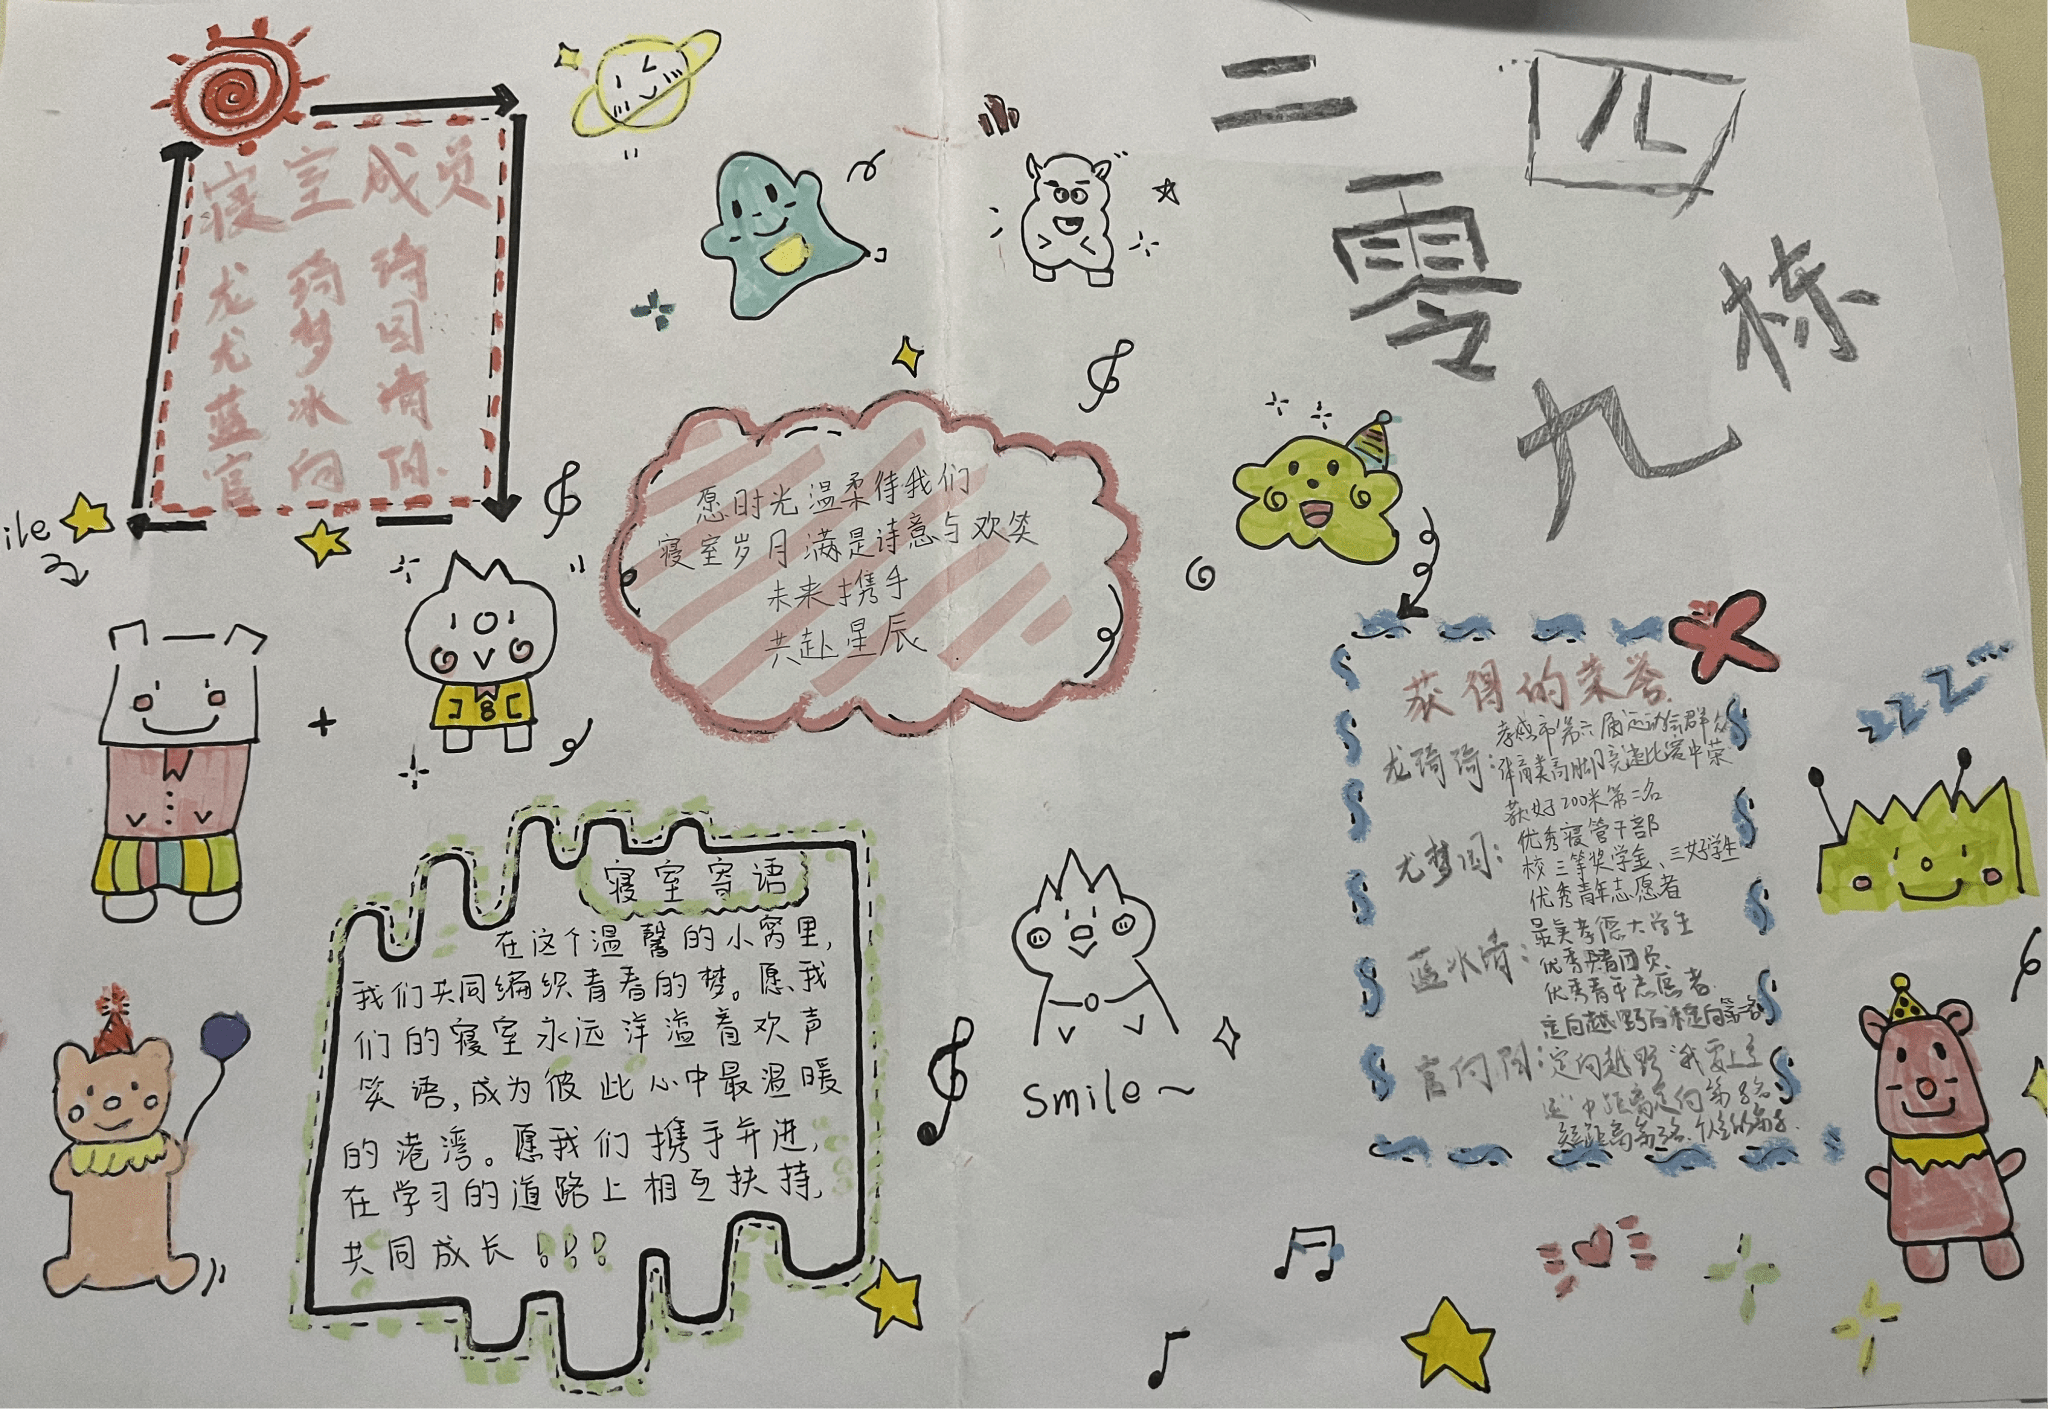 寝室成员
龙琦琦
尤梦囡
蓝冰清
官向阳
ile
二零九
四栋
愿时光温柔待我们
寝室岁月满是诗意与欢笑
未来携手
共赴星辰
寝室寄语
在这个温馨的小窝里,
我们共同编织青春的梦。愿我
们的寝室永远洋溢着欢声
笑语,成为彼此心中最温暖
的港湾。愿我们携手并进,
在学习的道路上相互扶持,
共同成长!!!
Smile~
获得的荣誉
龙琦琦:孝感市第六届运动会群众
体育类高脚竞速比赛中荣
获女子200米第二名
尤梦囡:优秀寝管干部
校三等奖学金、三好学生
优秀青年志愿者
蓝冰清:最美孝德大学生
优秀共青团员
优秀青年志愿者
定向越野百米定向第一名
官向阳:定向越野"我要上全
运"中距离定向第8名
短距离第
zzz